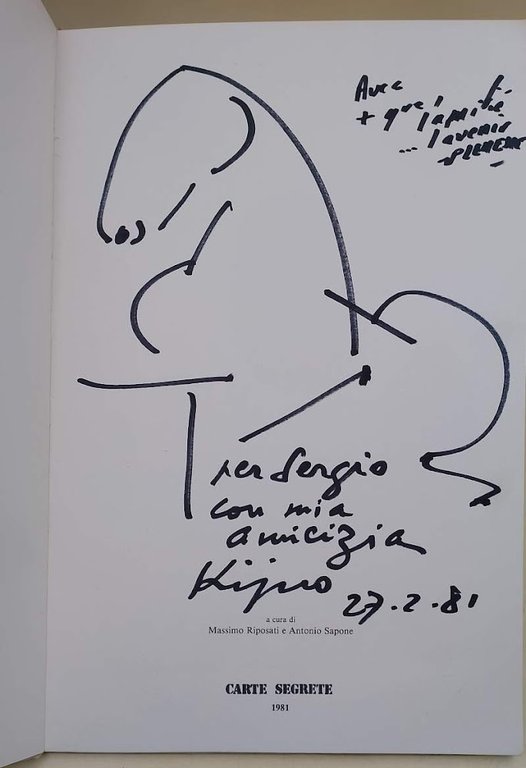 Avec
+ que
l'amitié
... l'avenir
per Sergio
con mia
amicizia
Kijno
27.2.81
a cura di
Massimo Riposati e Antonio Sapone
CARTE SEGRETE
1981